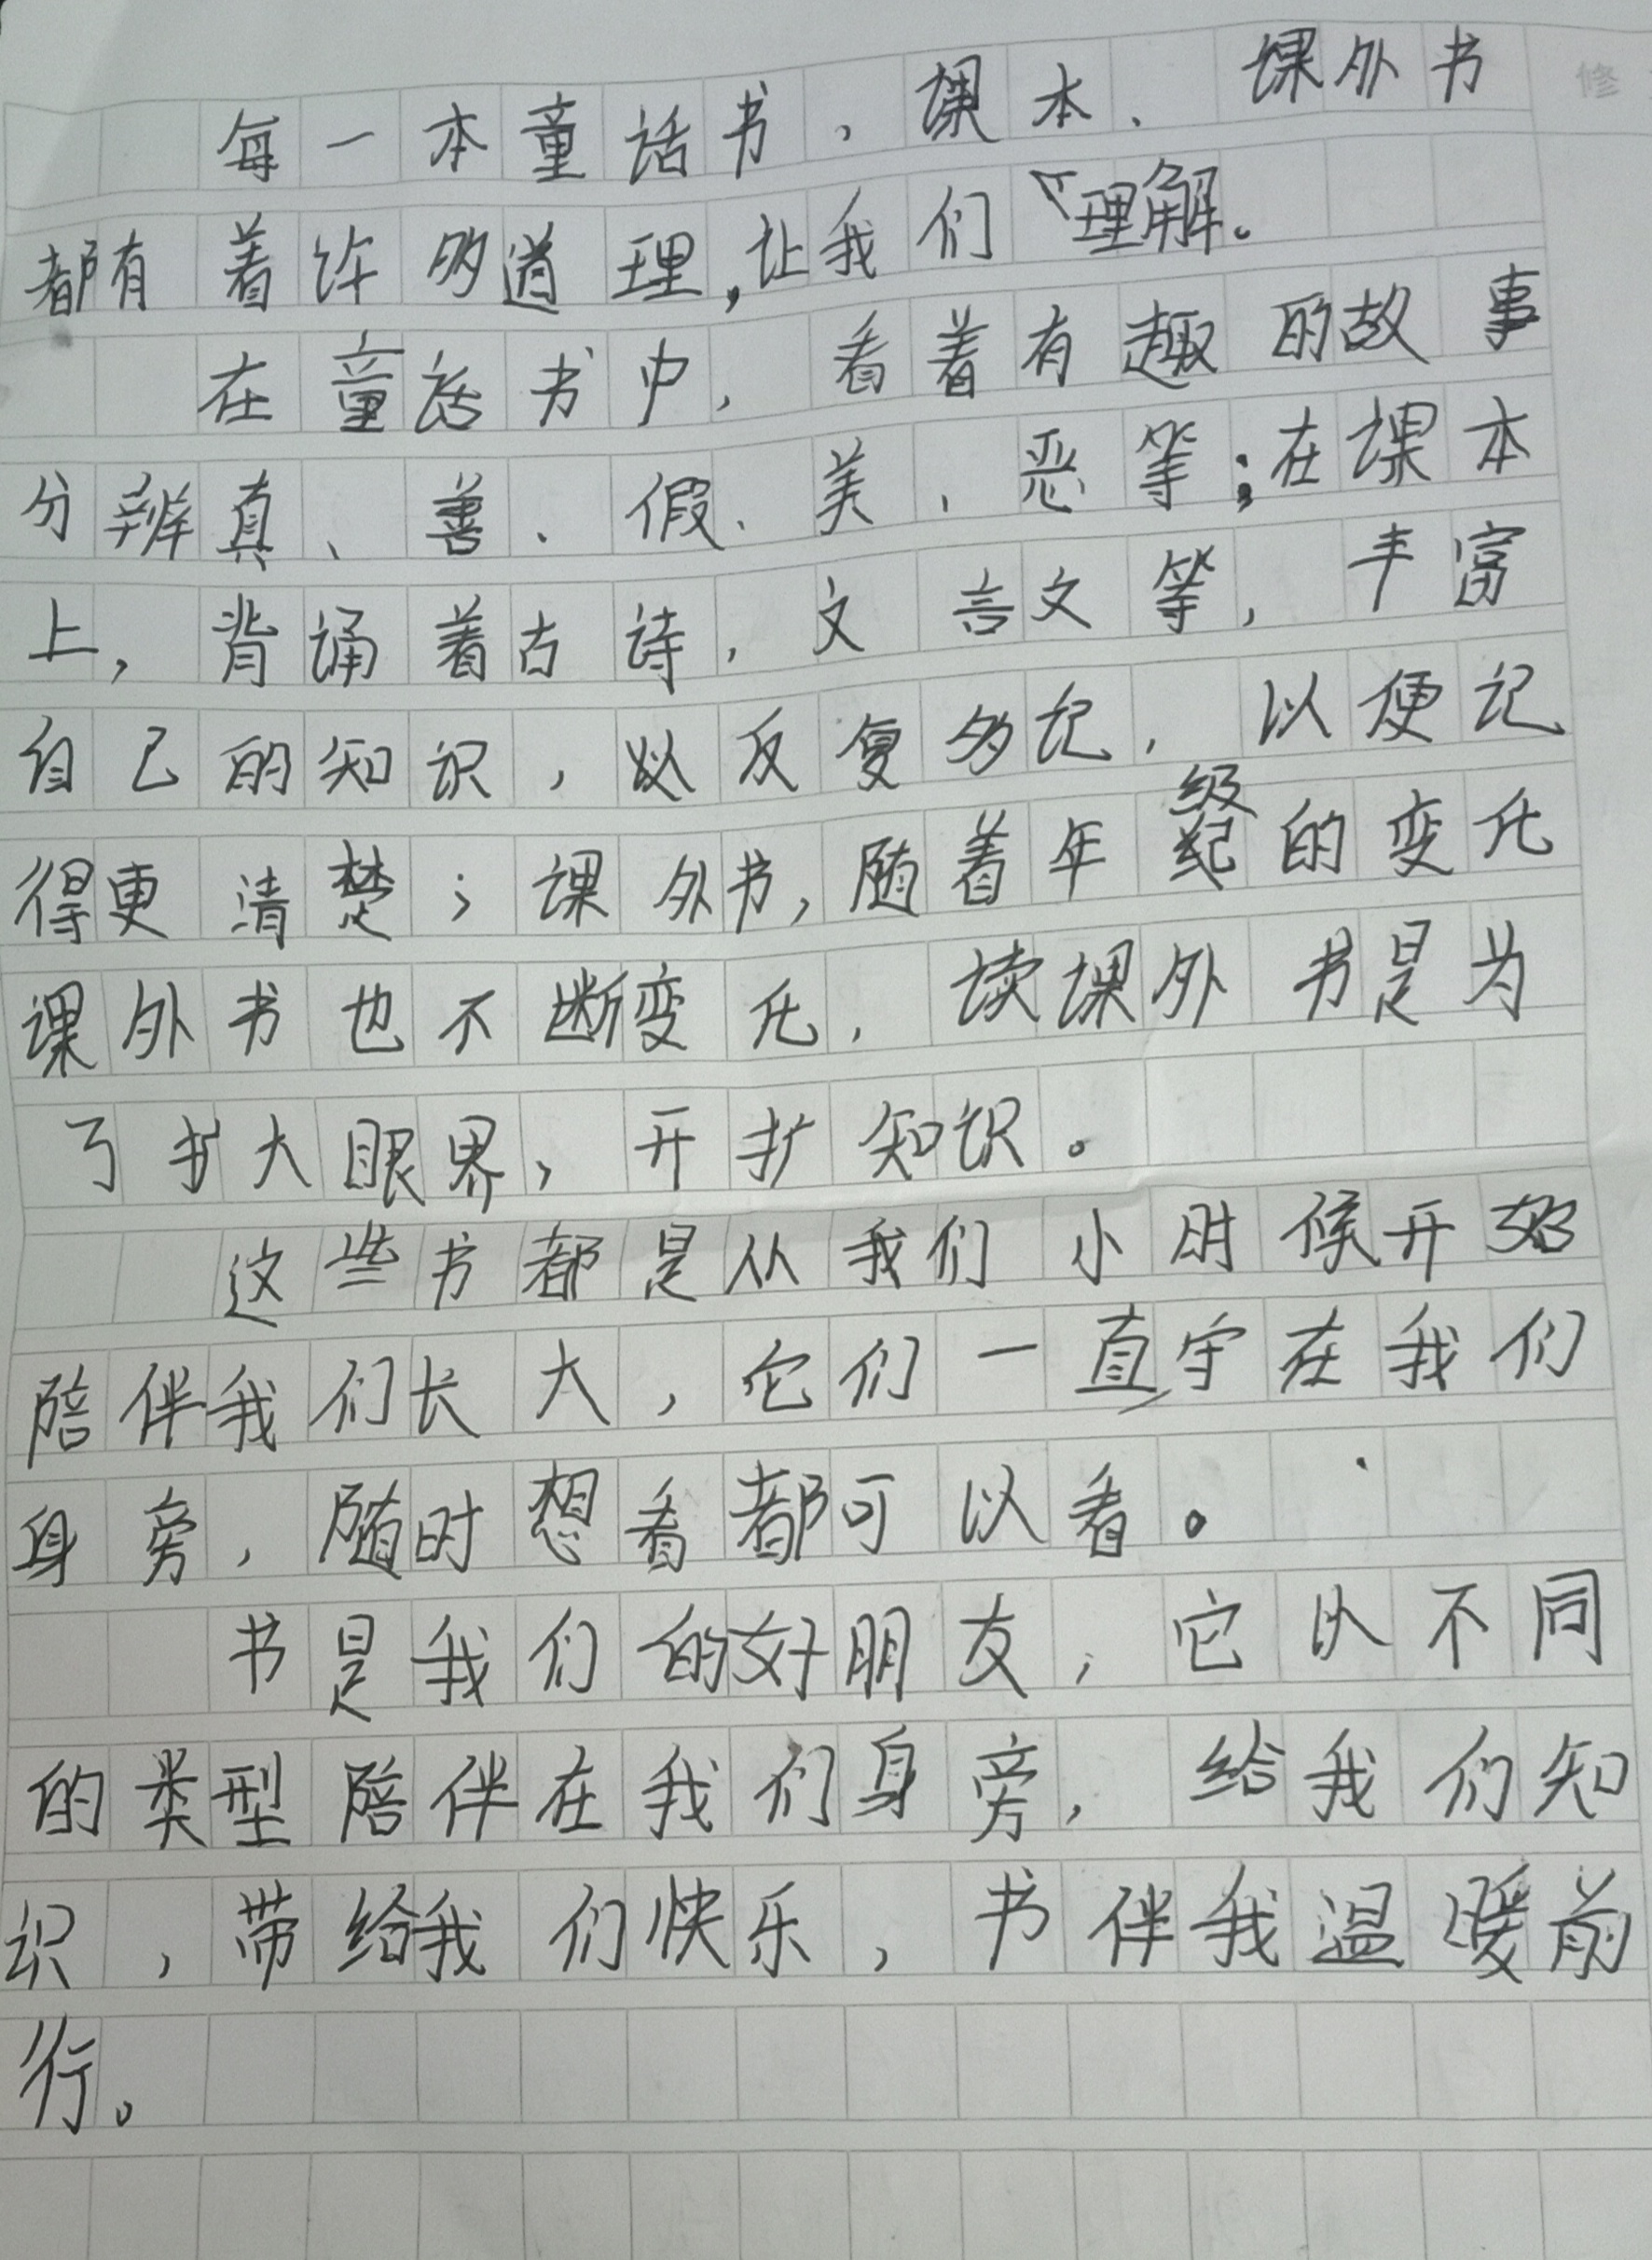 修
每一本童话书、课本、课外书
都有着许多道理,让我们理解。
在童话书中,看着有趣的故事
分辨真、善、假、美、恶等;在课本
上,背诵着古诗,文言文等,丰富
自己的知识,以反复多记,以便记
得更清楚;课外书,随着年级的变化
课外书也不断变化,读课外书是为
了扩大眼界,开扩知识。
这些书都是从我们小时候开始
陪伴我们长大,它们一直守在我们
身旁,随时想看都可以看。
书是我们的好朋友,它以不同
的类型陪伴在我们身旁,给我们知
识,带给我们快乐,书伴我温暖前
行。